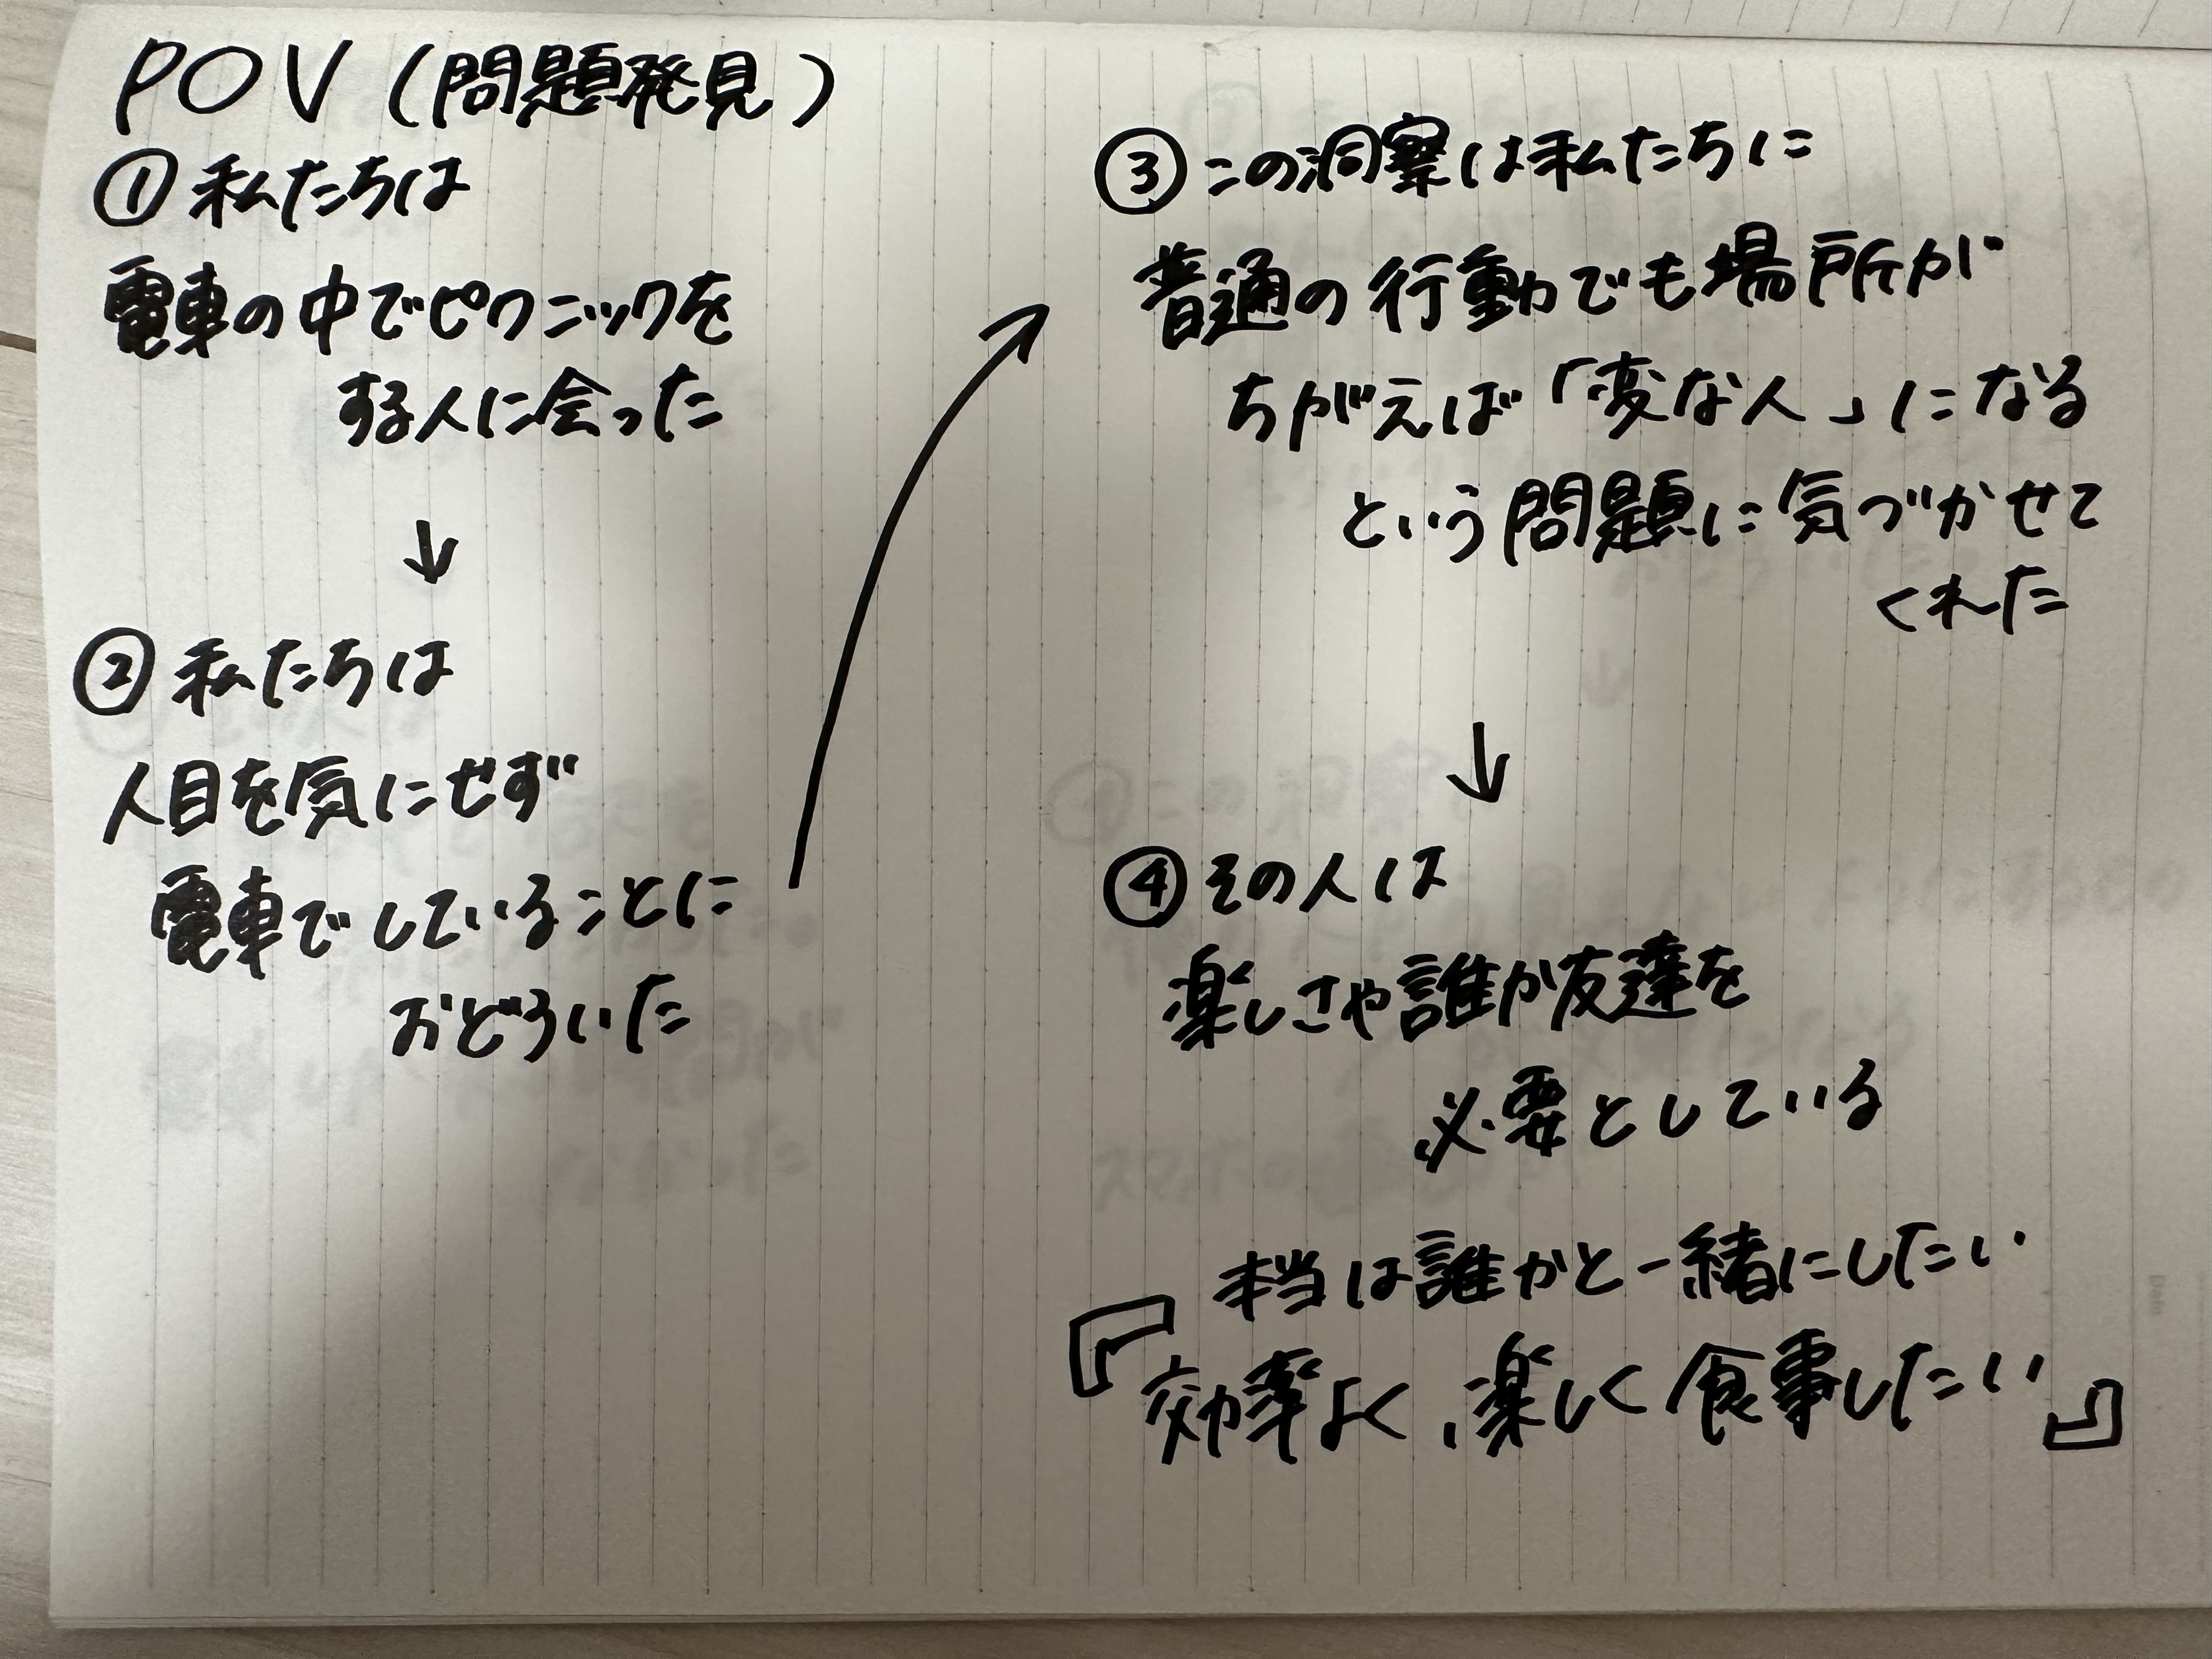 POV（問題発見）
①私たちは
電車の中でピクニックを
する人に会った
↓
②私たちは
人目を気にせず
電車でしていることに
おどろいた
③この洞察は私たちに
普通の行動でも場所が
ちがえば「変な人」になる
という問題に気づかせて
くれた
↓
④その人は
楽しさや誰か友達を
必要としている
本当は誰かと一緒にしたい
『効率よく、楽しく食事したい』